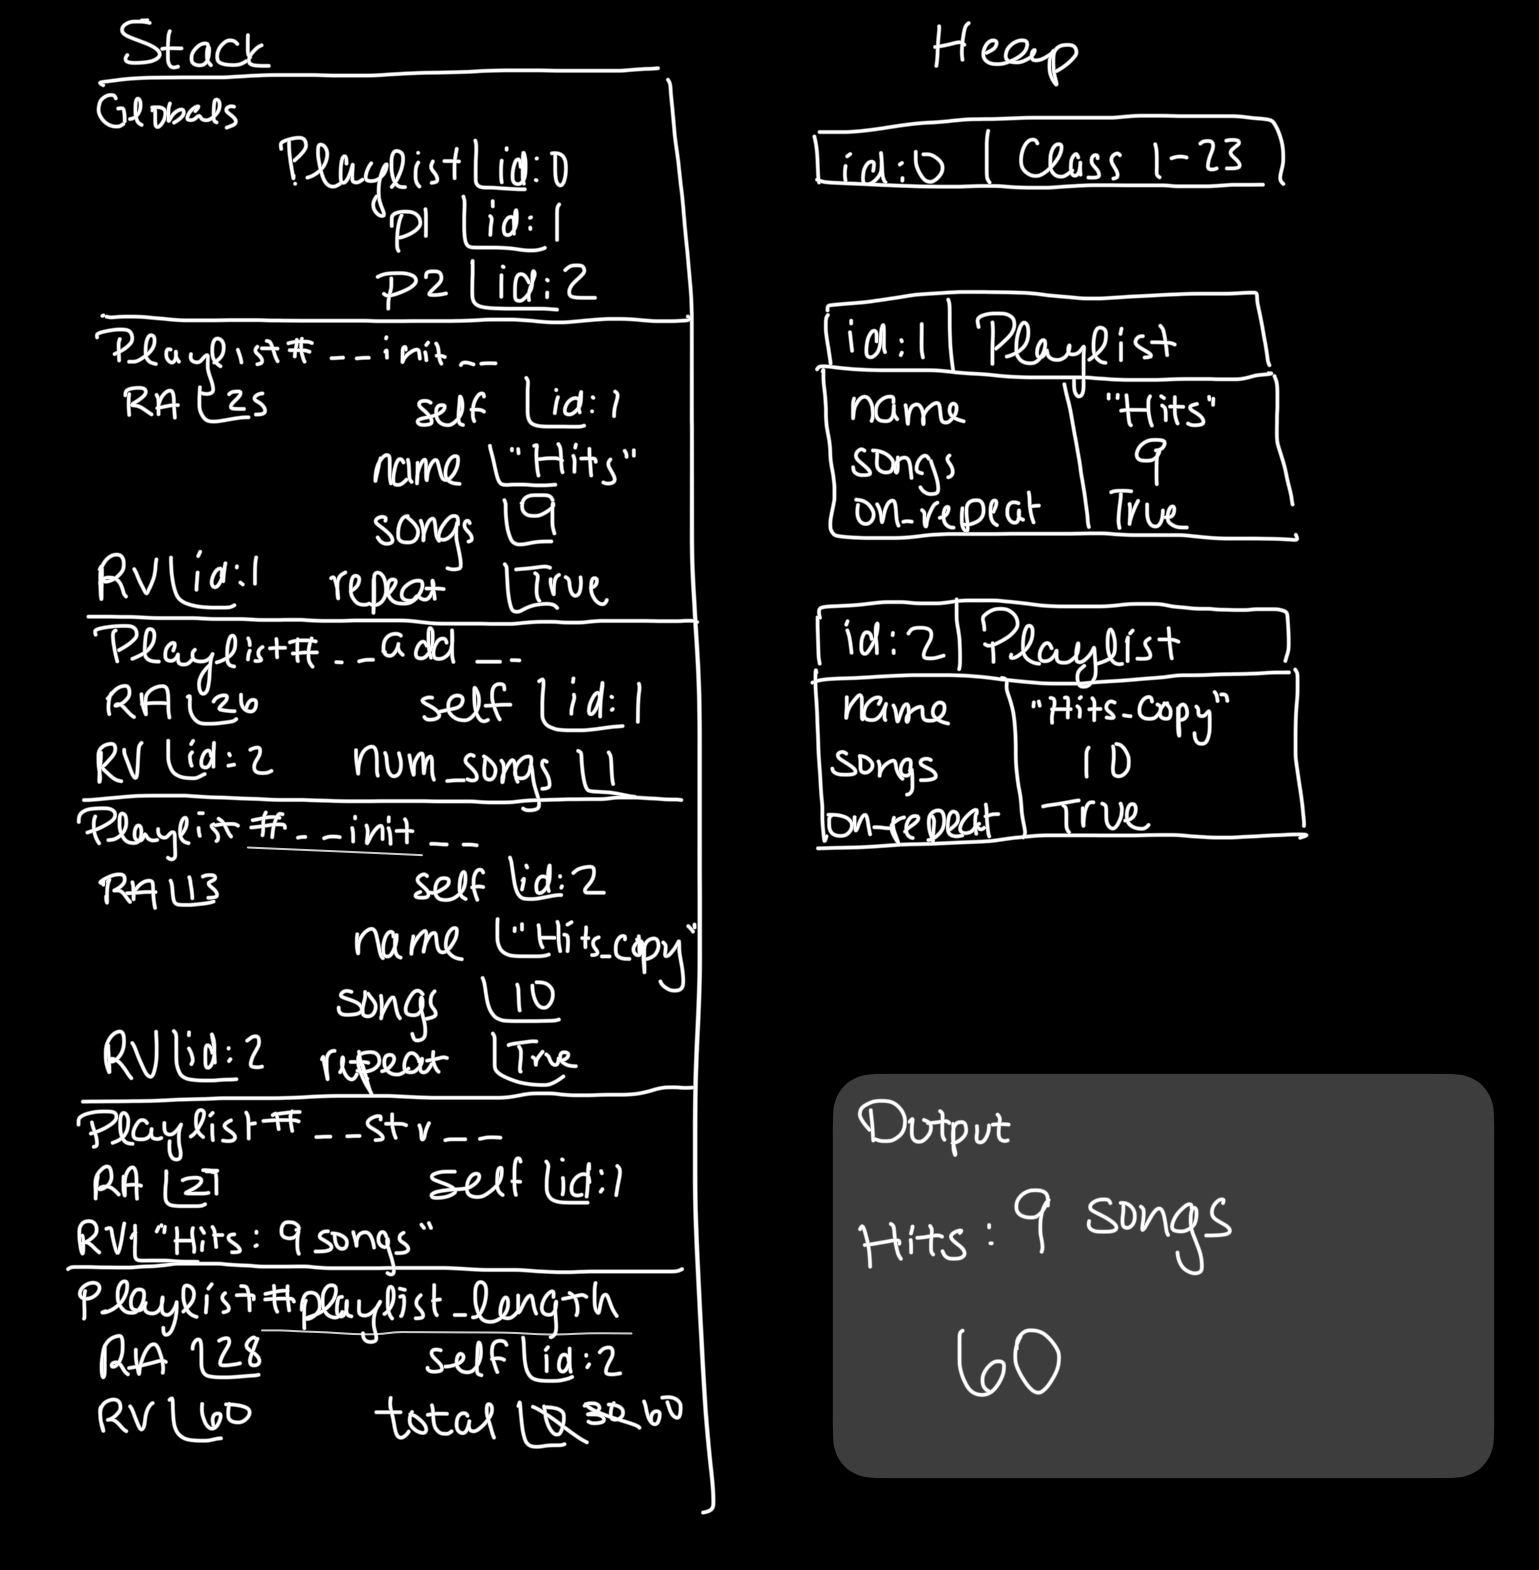 Stack
Globals
Playlist id:0
P1 id:1
P2 id:2
Playlist#__init__
RA 25 self id:1
name "Hits"
songs 9
RV id:1 repeat True
Playlist#__add__
RA 26 self id:1
RV id:2 num_songs 1
Playlist#__init__
RA 13 self id:2
name "Hits_copy"
songs 10
RV id:2 repeat True
Playlist#__str__
RA 27 self id:1
RV "Hits: 9 songs"
Playlist#playlist_length
RA 28 self id:2
RV 60 total 0 30 60
Heap
id:0 Class 1-23
id:1 Playlist
name "Hits"
songs 9
on_repeat True
id:2 Playlist
name "Hits_Copy"
songs 10
on_repeat True
Output
Hits: 9 songs
60